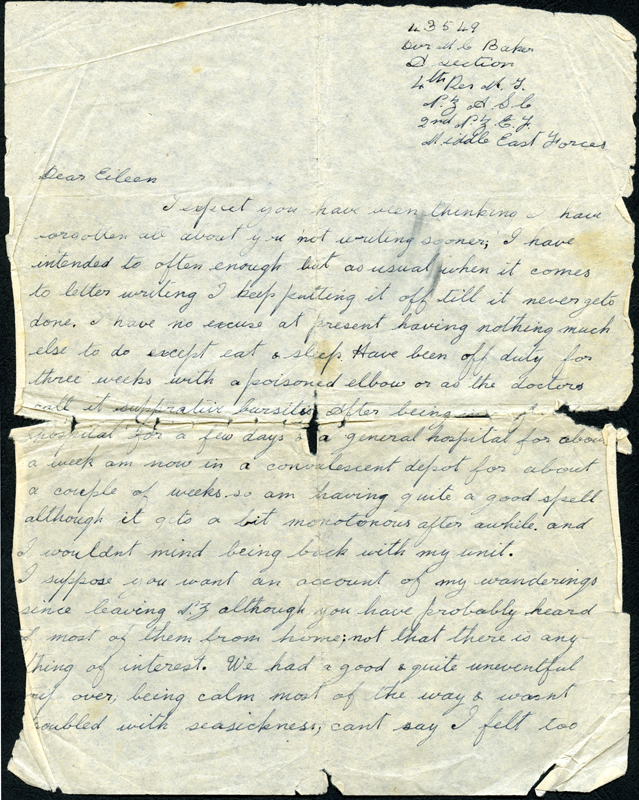 43549
Dvr M C Baker
D section
4th Res M. T.
N.Z A S C
2nd N.Z. E. F.
Middle East Forces
Dear Eileen
I expect you have been thinking I have
forgotten all about you not writing sooner, I have
intended to often enough but as usual when it comes
to letter writing I keep putting it off till it never gets
done. I have no excuse at present having nothing much
else to do except eat & sleep. Have been off duty for
three weeks with a poisoned elbow or as the doctors
call it supprative bursitis After being
hospital for a few days & a general hospital for about
a week am now in a convalescent depot for about
a couple of weeks. so am having quite a good spell
although it gets a bit monotonous after awhile. and
I wouldnt mind being back with my unit.
I suppose you want an account of my wanderings
since leaving N.Z although you have probably heard
most of them from home; not that there is any-
thing of interest. We had a good & quite uneventful
over, being calm most of the way & wasnt
with seasickness, cant say I felt too